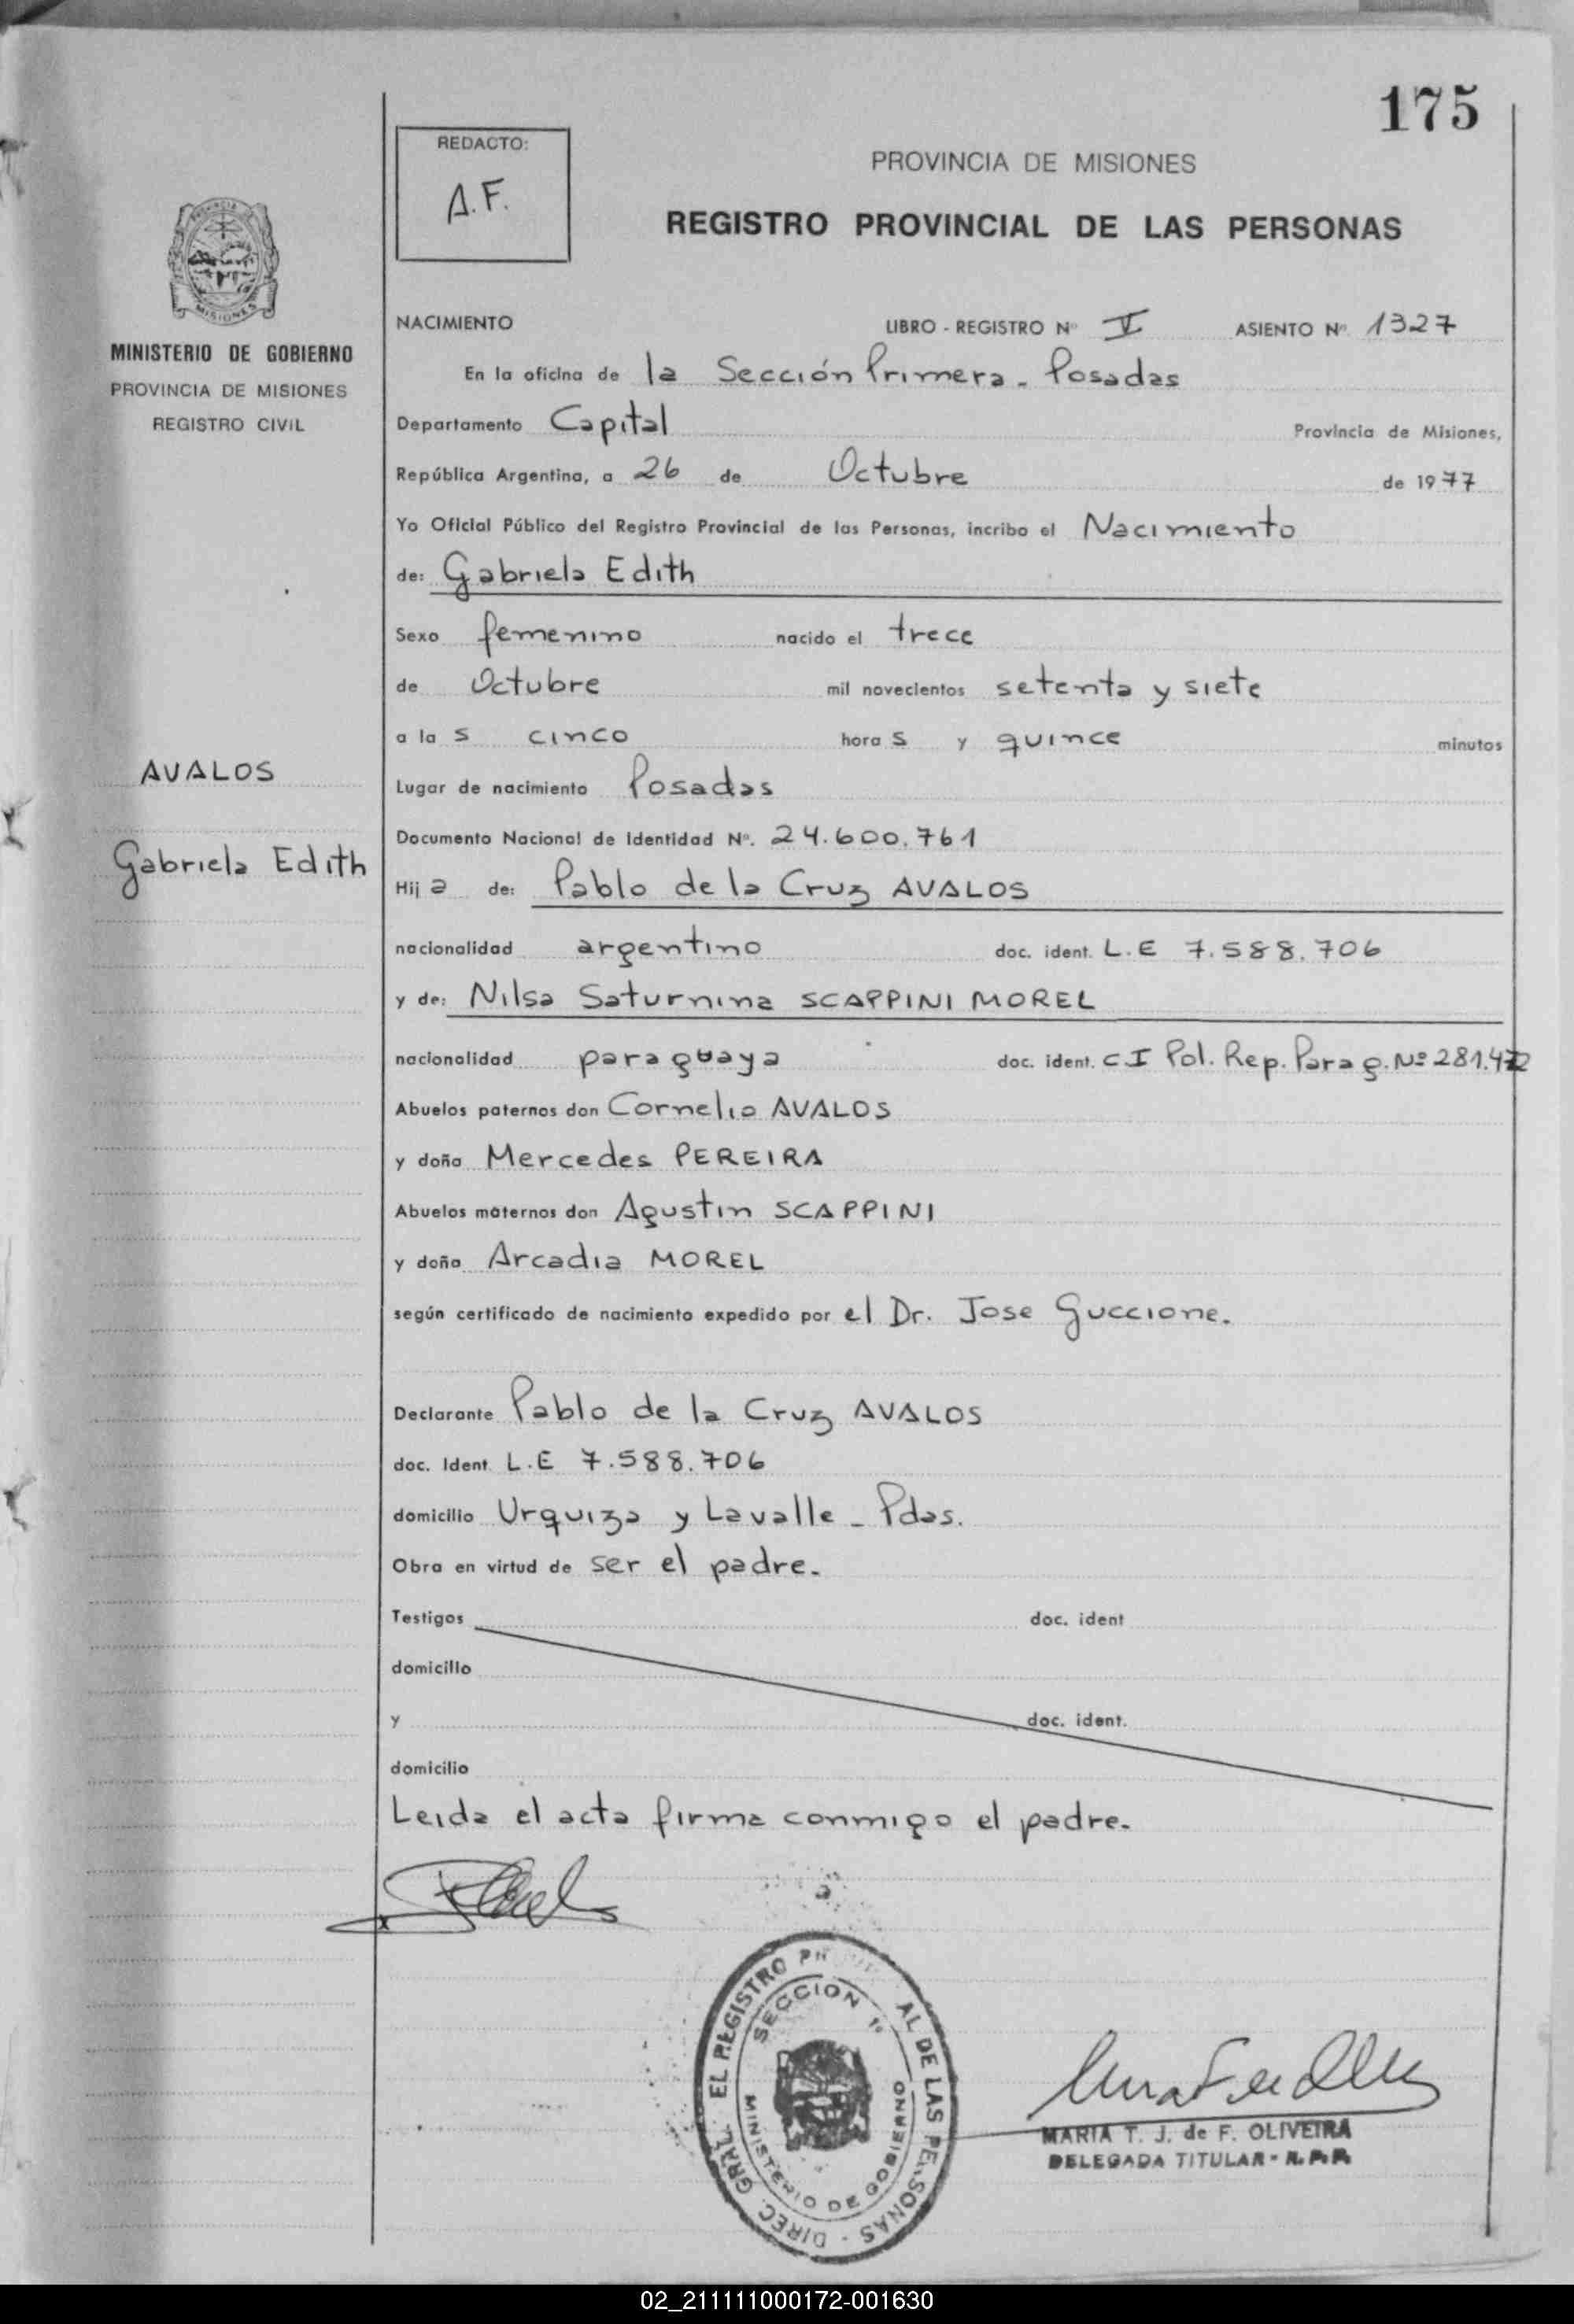 175
REDACTO:
A.F.
PROVINCIA DE MISIONES
REGISTRO PROVINCIAL DE LAS PERSONAS
MINISTERIO DE GOBIERNO
PROVINCIA DE MISIONES
REGISTRO CIVIL
NACIMIENTO LIBRO - REGISTRO Nº V ASIENTO Nº 1327
En la oficina de la Sección Primera - Posadas
Departamento Capital Provincia de Misiones,
República Argentina, a 26 de Octubre de 1977
Yo Oficial Público del Registro Provincial de las Personas, incribo el Nacimiento
de: Gabriela Edith
Sexo femenino nacido el trece
de Octubre mil novecientos setenta y siete
a la s cinco hora s y quince minutos
AVALOS
Gabriela Edith
Lugar de nacimiento Posadas
Documento Nacional de Identidad Nº. 24.600.761
Hij a de: Pablo de la Cruz AVALOS
nacionalidad argentino doc. ident. L.E 7.588.706
y de: Nilsa Saturnina SCAPPINI MOREL
nacionalidad paraguaya doc. ident. C I Pol. Rep. Parag. Nº 281.472
Abuelos paternos don Cornelio AVALOS
y doña Mercedes PEREIRA
Abuelos maternos don Agustin SCAPPINI
y doña Arcadia MOREL
según certificado de nacimiento expedido por el Dr. Jose Guccione.
Declarante Pablo de la Cruz AVALOS
doc. Ident. L.E 7.588.706
domicilio Urquiza y Lavalle - Pdas.
Obra en virtud de ser el padre.
Testigos doc. ident
domicilio
y doc. ident.
domicilio
Leida el acta firma conmigo el padre.
DIREC. GRAL. EL REGISTRO AL DE LAS PERSONAS -
SECCION 1º
MINISTERIO DE GOBIERNO
MARIA T. J. de F. OLIVEIRA
DELEGADA TITULAR - R.P.P.
02_211111000172-001630